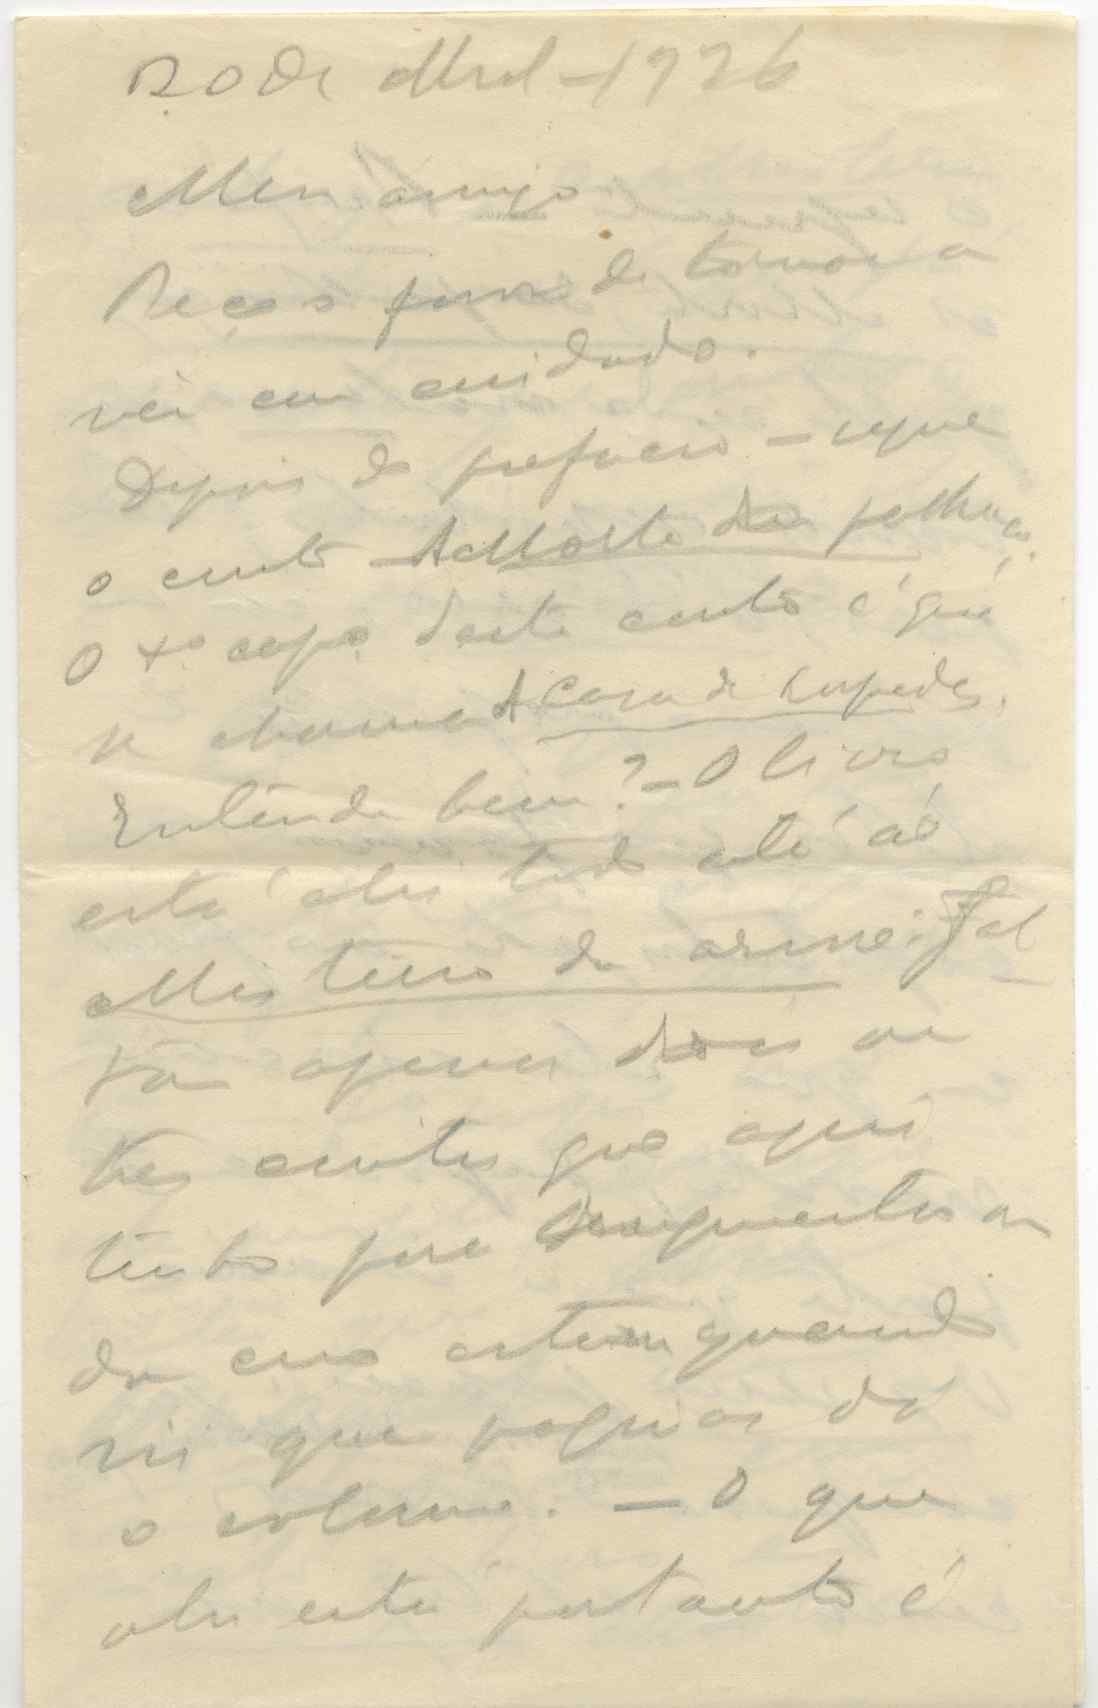 20 de Abril - 1926
Meu amigo
Peço o favor de tornar a
ver com cuidado.
Depois do prefacio - segue
o conto A Morte do palhaço.
O 1º capº deste conto é que
se chama A Casa de hospedes.
Entende bem? - O livro
está ahi todo até ao
Misterio da arvore. Fal
tão apenas dois ou
tres contos que aqui
tenho para
do eu estou quando
vir que paginas dá
o volume. - O que
ahi está portanto é